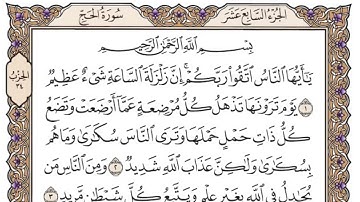 الجزء السابع عشر
سورة الحج
بِسْمِ اللَّهِ الرَّحْمَٰنِ الرَّحِيمِ
يَٰٓأَيُّهَا النَّاسُ اتَّقُوا رَبَّكُمْ إِنَّ زَلْزَلَةَ السَّاعَةِ شَيْءٌ عَظِيمٌ
١ يَوْمَ تَرَوْنَهَا تَذْهَلُ كُلُّ مُرْضِعَةٍ عَمَّا أَرْضَعَتْ وَتَضَعُ
كُلُّ ذَاتِ حَمْلٍ حَمْلَهَا وَتَرَى النَّاسَ سُكَٰرَىٰ وَمَا هُم
بِسُكَٰرَىٰ وَلَٰكِنَّ عَذَابَ اللَّهِ شَدِيدٌ ٢ وَمِنَ النَّاسِ مَن
يُجَٰدِلُ فِي اللَّهِ بِغَيْرِ عِلْمٍ وَيَتَّبِعُ كُلَّ شَيْطَٰنٍ مَّرِيدٍ ٣
الحزب
٣٤